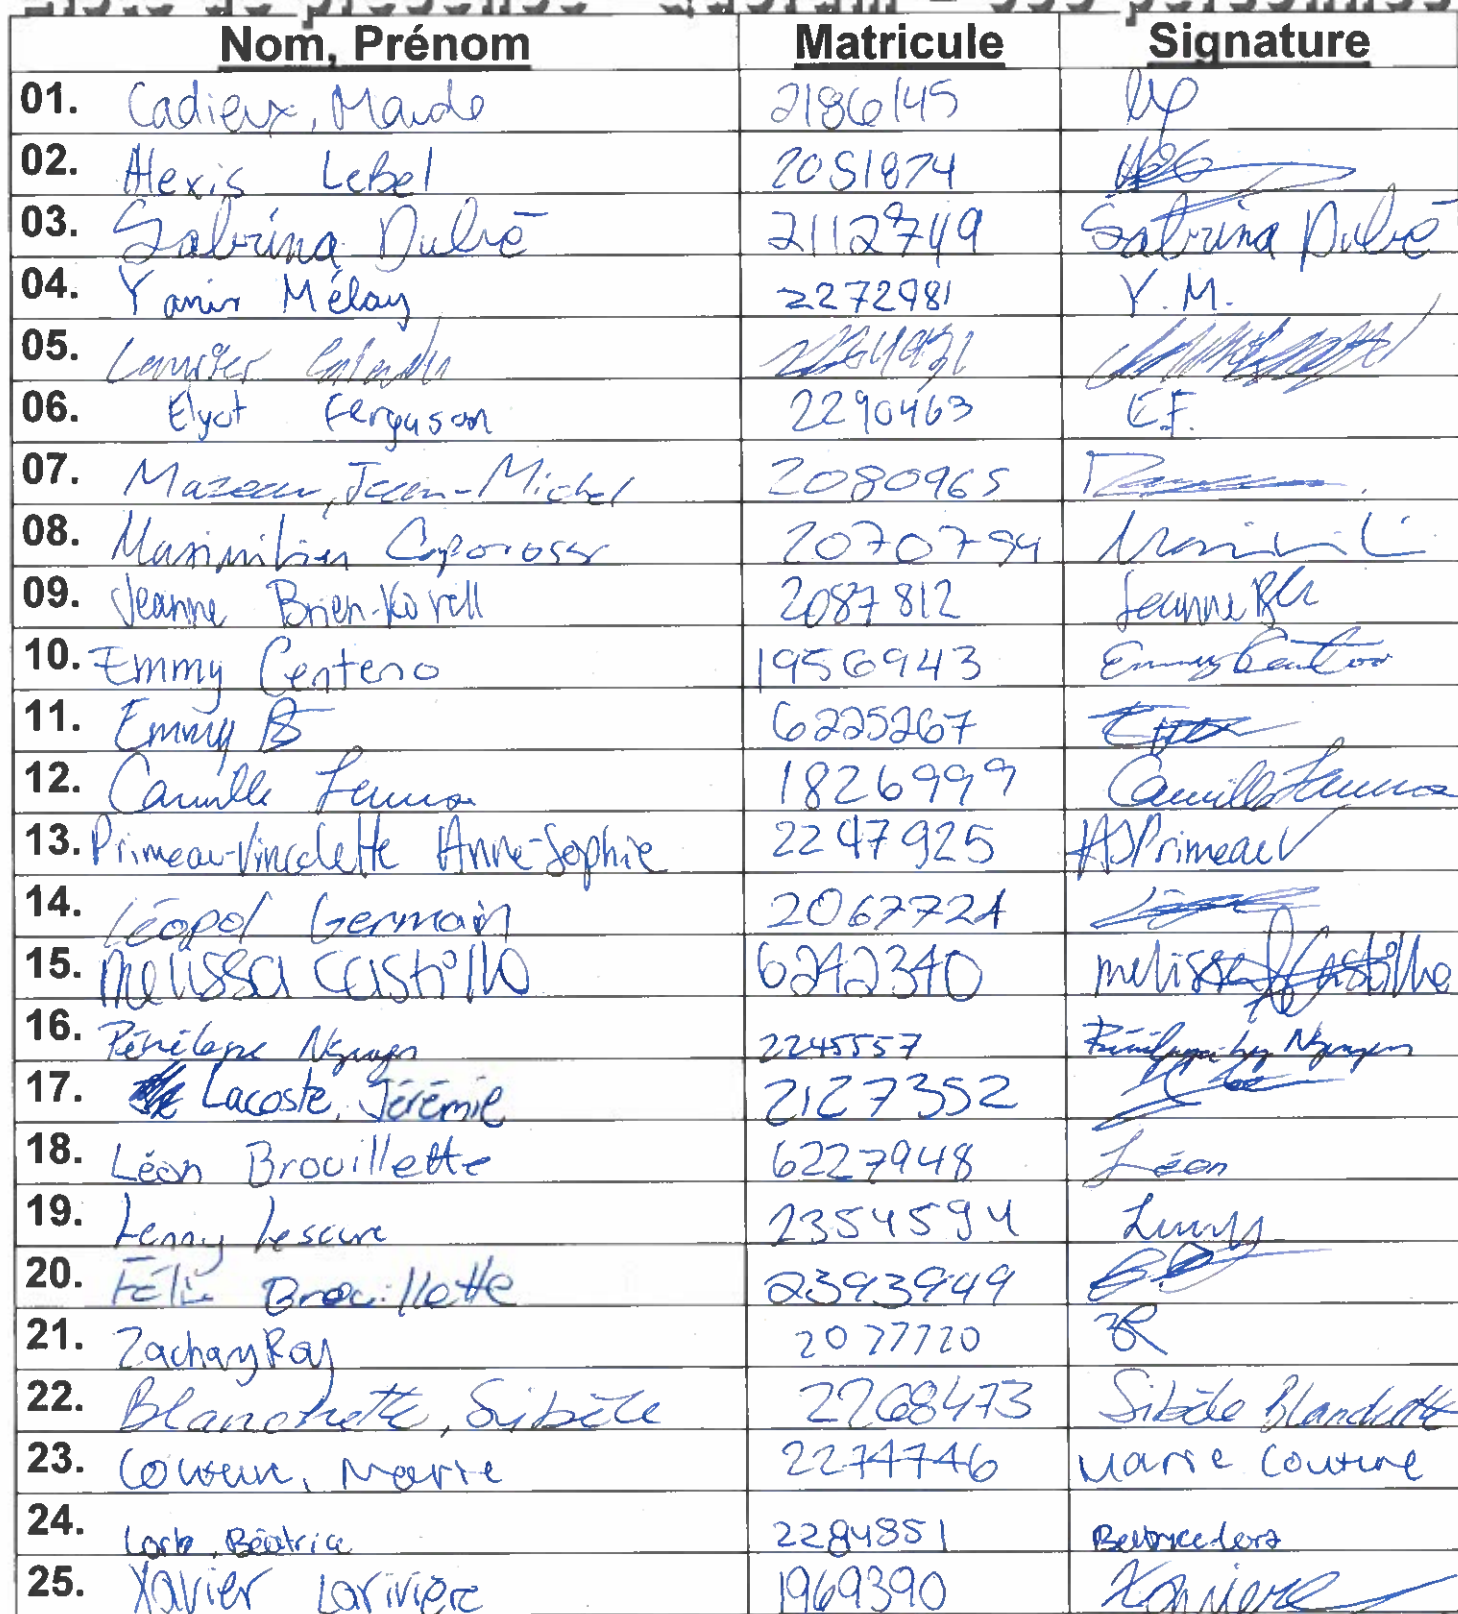 Liste de présence - Quorum - 333 personnes
Nom, Prénom Matricule Signature
01. Cadieux, Maude 2186145
02. Alexis LeBel 2051874
03. Sabrina Dubé 2112749 Sabrina Dubé
04. Yanir Mélay 2272981 Y.M.
05.
06. Elyot Ferguson 2290463 E.F.
07. Mazeau, Jean-Michel 2080965
08. Maximilien Caporossi 2070794
09. Jeanne Brien-Kovell 2087812 Jeanne
10. Emmy Centeno 1956943 Emmy
11. Emmy B 6225267
12. Camille 1826999 Camille
13. Primeau-Vinculette Anne-Sophie 2247925 ASPrimeauV
14. Léopol Germain 2067724
15. Melissa Castillo 6242340 melissa Castillo
16. Pénélope Nguyen 2245557 Nguyen
17. Lacoste, Jérémie 2127352
18. Léon Brouillette 6227948 Léon
19. Lenny Lescure 2354594 Lenny
20. Félix Brouillette 2393949
21. Zachary Roy 2077720 ZR
22. Blanchette, Sibèle 2268473 Sibèle Blanchette
23. Couture, Marie 2274746 Marie Couture
24. Béatrice 2284851
25. Xavier Larivière 1969390